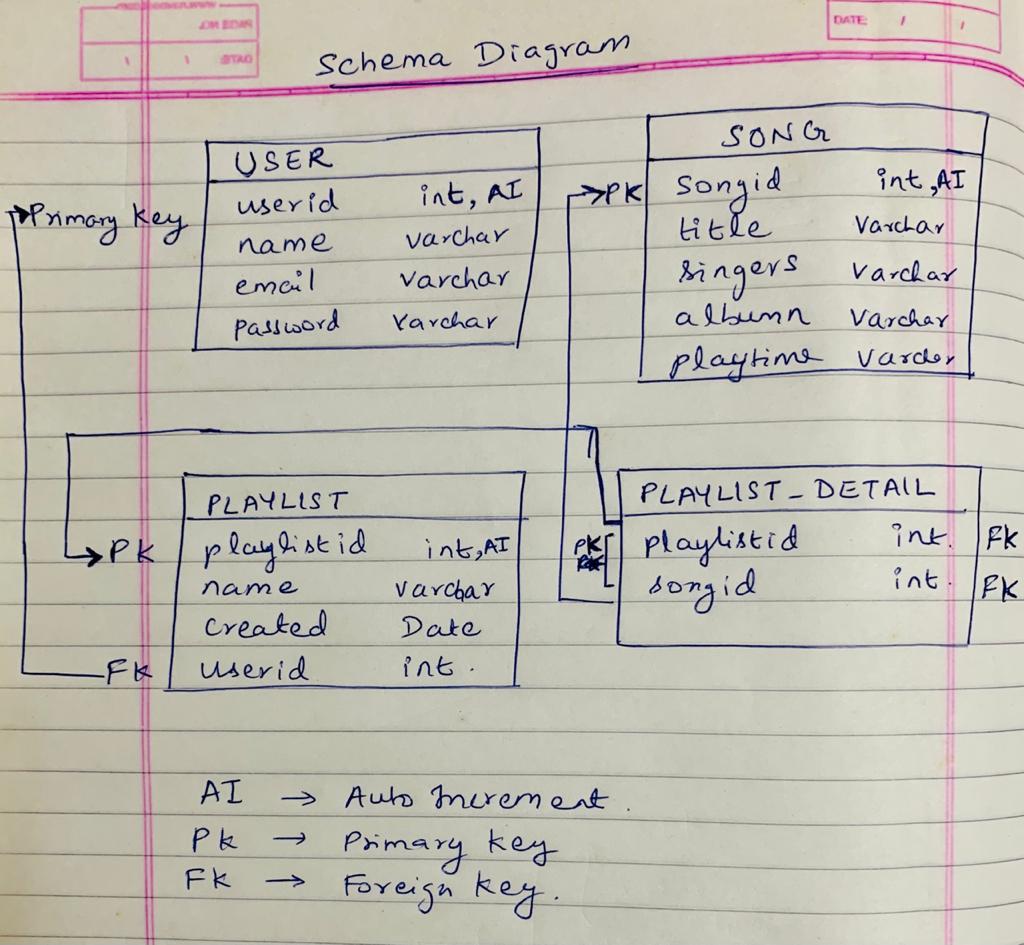 DATE: / /
Schema Diagram
USER
Primary Key userid int, AI
name varchar
email varchar
password varchar
SONG
PK songid int, AI
title varchar
singers varchar
albumn varchar
playtime
PLAYLIST
PK playlistid int, AI
name varchar
created Date
FK userid int.
PLAYLIST_DETAIL
PK playlistid int. FK
songid int. FK
AI → Auto Increment.
PK → Primary key
FK → Foreign key.